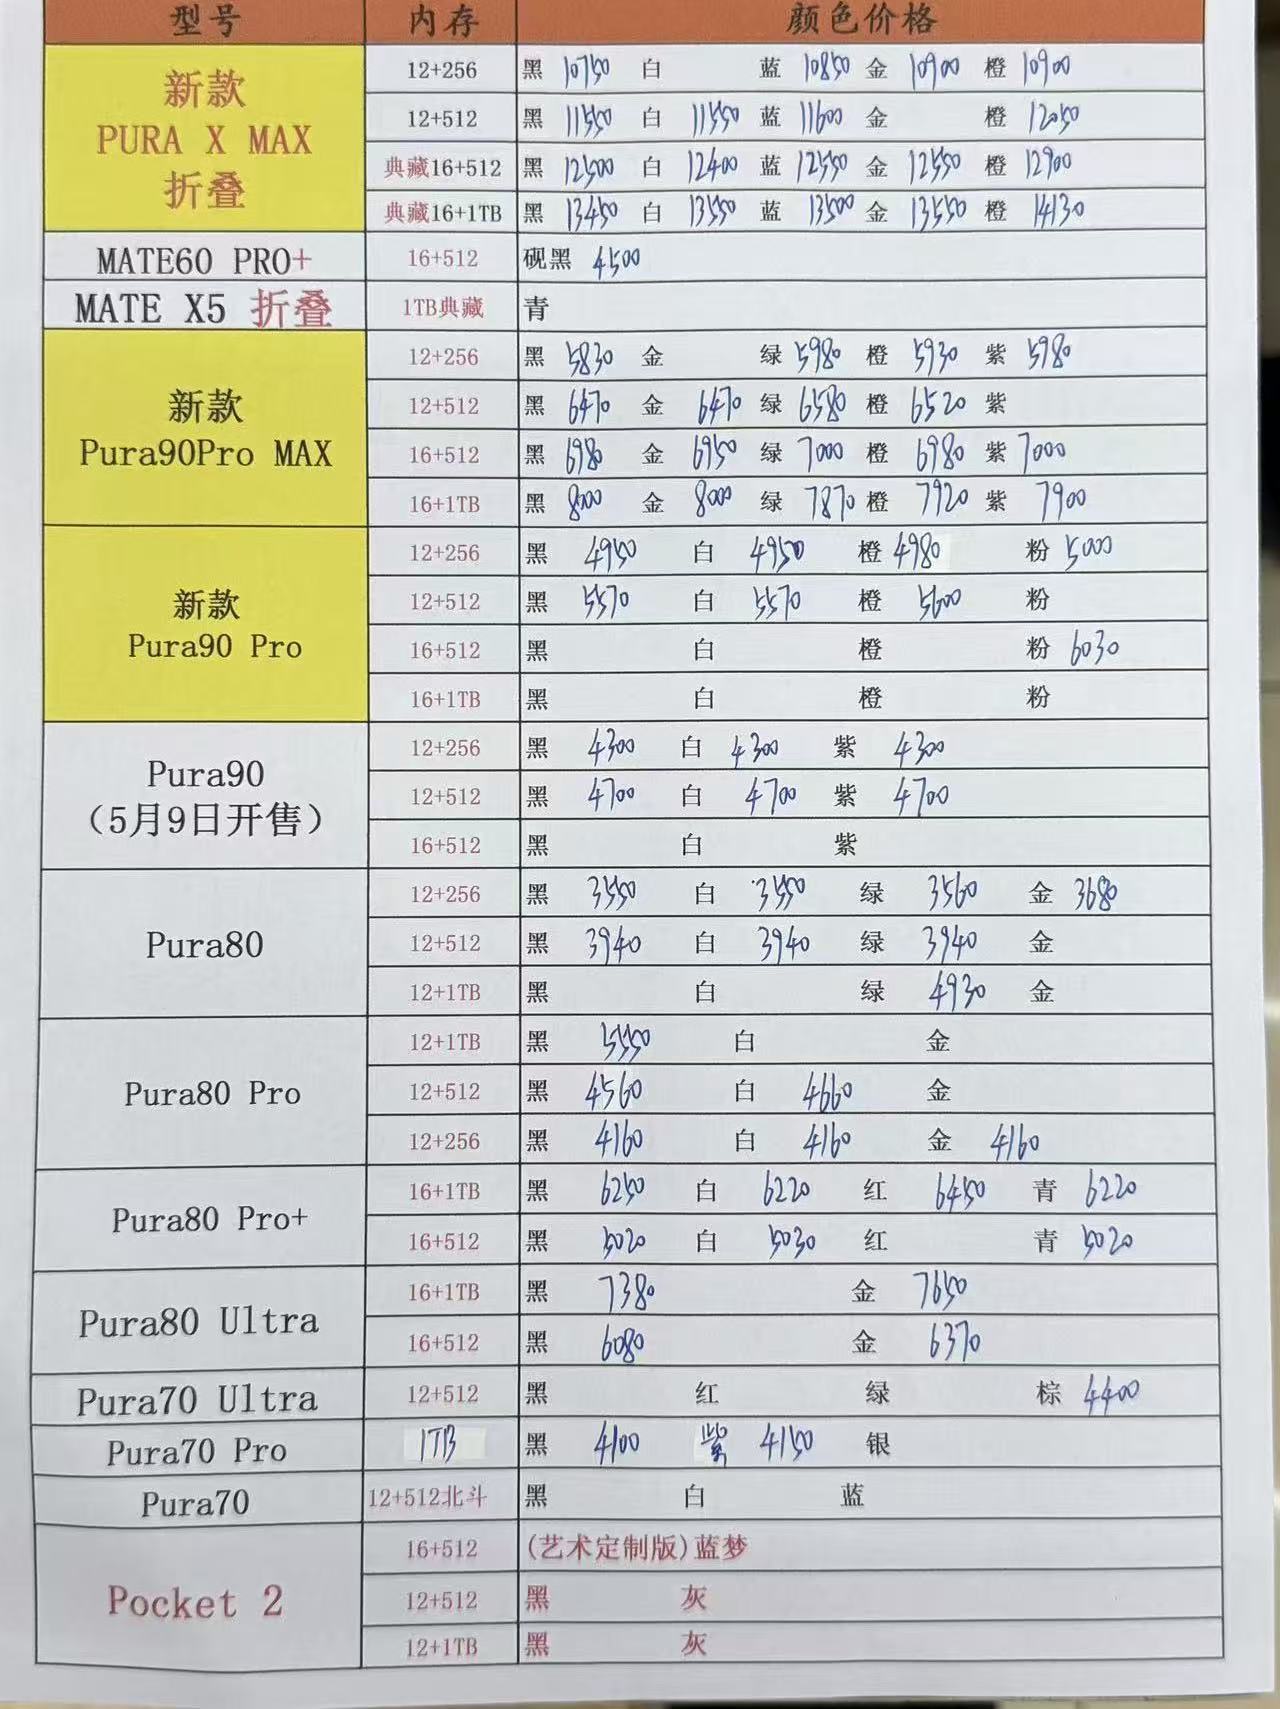 型号 内存 颜色价格
新款 PURA X MAX 折叠
12+256 黑 10750 白 蓝 10850 金 10900 橙 10900
12+512 黑 11550 白 11550 蓝 11600 金 橙 12050
典藏16+512 黑 12500 白 12400 蓝 12550 金 12550 橙 12900
典藏16+1TB 黑 13450 白 13550 蓝 13500 金 13550 橙 14130
MATE60 PRO+ 16+512 砚黑 4500
MATE X5 折叠 1TB典藏 青
新款 Pura90Pro MAX
12+256 黑 5830 金 绿 5980 橙 5930 紫 5980
12+512 黑 6470 金 6470 绿 6580 橙 6520 紫
16+512 黑 6980 金 6950 绿 7000 橙 6980 紫 7000
16+1TB 黑 8000 金 8000 绿 7870 橙 7920 紫 7900
新款 Pura90 Pro
12+256 黑 4950 白 4950 橙 4980 粉 5000
12+512 黑 5570 白 5570 橙 5600 粉
16+512 黑 白 橙 粉 6030
16+1TB 黑 白 橙 粉
Pura90 (5月9日开售)
12+256 黑 4300 白 4300 紫 4300
12+512 黑 4700 白 4700 紫 4700
16+512 黑 白 紫
Pura80
12+256 黑 3550 白 3550 绿 3560 金 3680
12+512 黑 3940 白 3940 绿 3940 金
12+1TB 黑 白 绿 4930 金
Pura80 Pro
12+1TB 黑 5550 白 金
12+512 黑 4560 白 4660 金
12+256 黑 4160 白 4160 金 4160
Pura80 Pro+
16+1TB 黑 6250 白 6220 红 6450 青 6220
16+512 黑 5020 白 5030 红 青 5020
Pura80 Ultra
16+1TB 黑 7380 金 7650
16+512 黑 6080 金 6370
Pura70 Ultra 12+512 黑 红 绿 棕 4400
Pura70 Pro 1TB 黑 4100 紫 4150 银
Pura70 12+512北斗 黑 白 蓝
Pocket 2
16+512 (艺术定制版)蓝梦
12+512 黑 灰
12+1TB 黑 灰